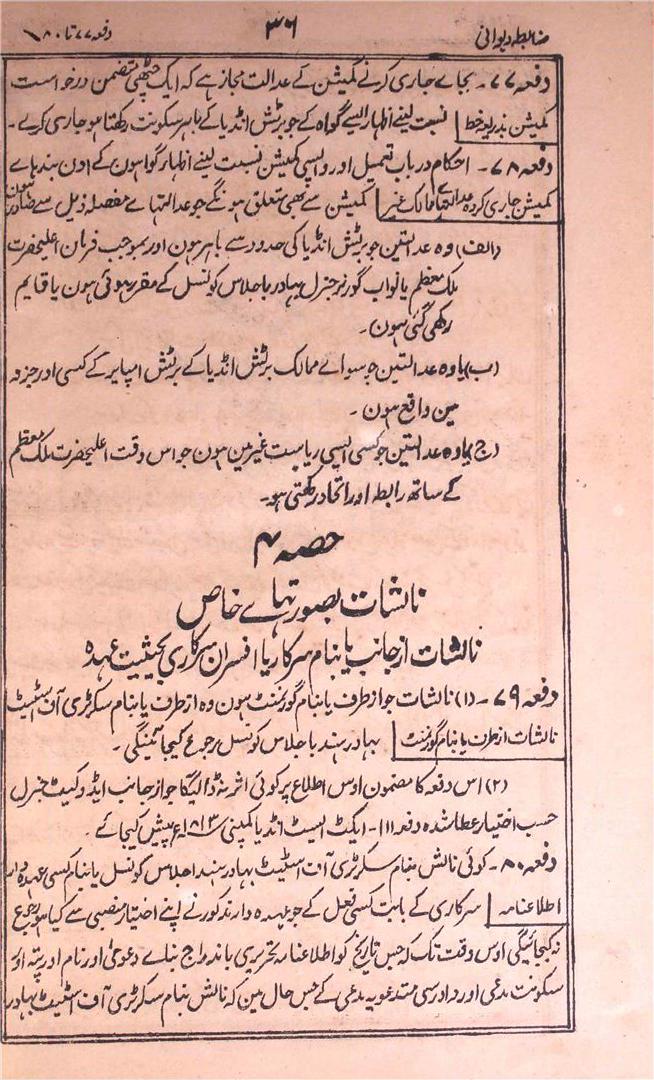 ضابطہ دیوانی ۳۶ دفعہ ۷۷ تا ۸۰
دفعہ ۷۷۔ بجاے جاری کرنے کمیشن کے عدالت مجاز ہے کہ ایک چٹھی متضمن درخواست
کمیشن بذریعہ خط نسبت لینے اظہار ایسے گواہ کے جو برٹش انڈیا کے باہر سکونت رکھتا ہو جاری کرے۔
دفعہ ۷۸۔ احکام درباب تعمیل اور واپسی کمیشن نسبت لینے اظہار گواہون کے اون
کمیشن جاری کردہ عدالتہاے ممالک غیر کمیشن سے بھی متعلق ہونگے جو عدالتہاے مفصلہ ذیل سے صادر ہون
(الف) وہ عدالتین جو برٹش انڈیا کی حدود سے باہر ہون اور بموجب فرمان اعلیحضرت
ملک معظم یا نواب گورنر جنرل بہادر باجلاس کونسل کے مقرر ہوئی ہون یا قایم
رکھی گئی ہون۔
(ب) یا وہ عدالتین جو سواے ممالک برٹش انڈیا کے برٹش امپایر کے کسی اور جزو
مین واقع ہون۔
(ج) یا وہ عدالتین جو کسی ایسی ریاست غیر مین ہون جو اس وقت اعلیحضرت ملک معظم
کے ساتھ رابطہ اور اتحاد رکھتی ہو۔
حصہ ۴
نالشات بصورتہاے خاص
نالشات از جانب یا بنام سرکار یا افسران سرکاری بحیثیت عہدہ
دفعہ ۷۹۔ (۱) نالشات جو از طرف یا بنام گورنمنٹ ہون وہ از طرف یا بنام سکرٹری آف اسٹیٹ
نالشات از طرف یا بنام گورنمنٹ بہادر ہند باجلاس کونسل رجوع کیجائینگی۔
(۲) اس دفعہ کا مضمون اوس اطلاع پر کوئی اثر نہ ڈالیگا جو از جانب ایڈوکیٹ جنرل
حسب اختیار عطا شدہ دفعہ ۱۱۱۔ ایکٹ ایسٹ انڈیا کمپنی ۱۸۱۳ء پیش کیجائے۔
دفعہ ۸۰۔ کوئی نالش بنام سکرٹری آف اسٹیٹ بہادر ہند اجلاس کونسل یا بنام کسی عہدہ دار
اطلاعنامہ سرکاری کے بابت کسی فعل کے جو عہدہ دار مذکور نے اپنے اختیار منصبی سے کیا ہو رجوع
نہ کیجائیگی اوس وقت تک کہ جس تاریخ کو اطلاعنامہ تحریری باندراج بناے دعوی اور نام اور پتہ اور
سکونت مدعی اور دادرسی مستدعویہ مدعی کے جس حال مین کہ نالش بنام سکرٹری آف اسٹیٹ بہادر